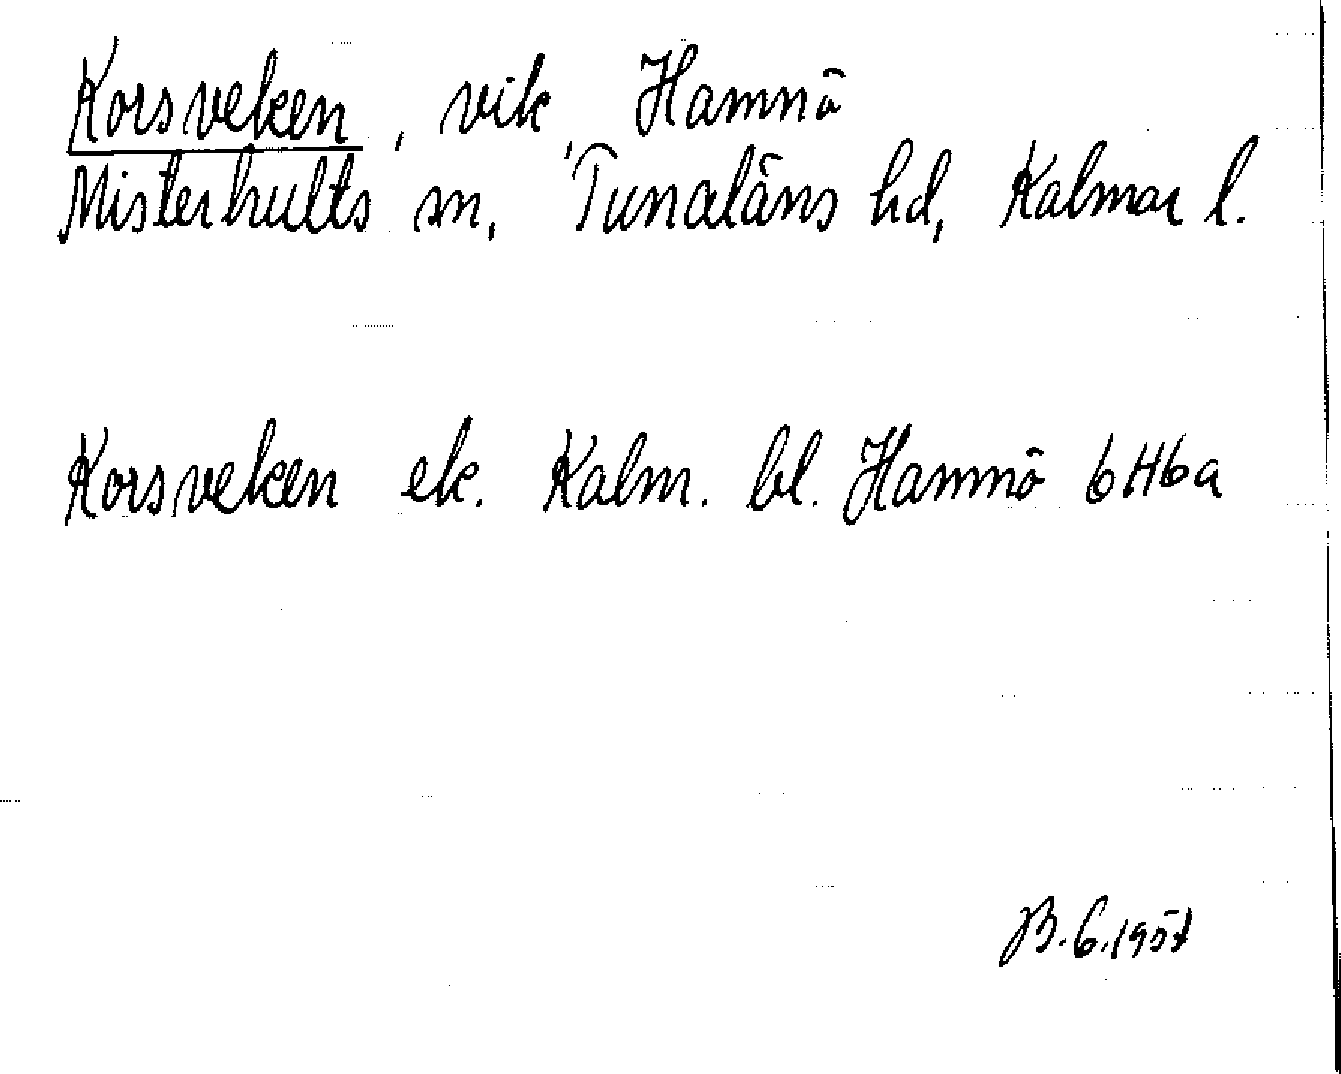 Korsveken, vik, Hamnö
Misterhults sn, Tunaläns hd, Kalmar l.
Korsveken ek. Kalm. bl. Hamnö 6H6a
B.G.1957